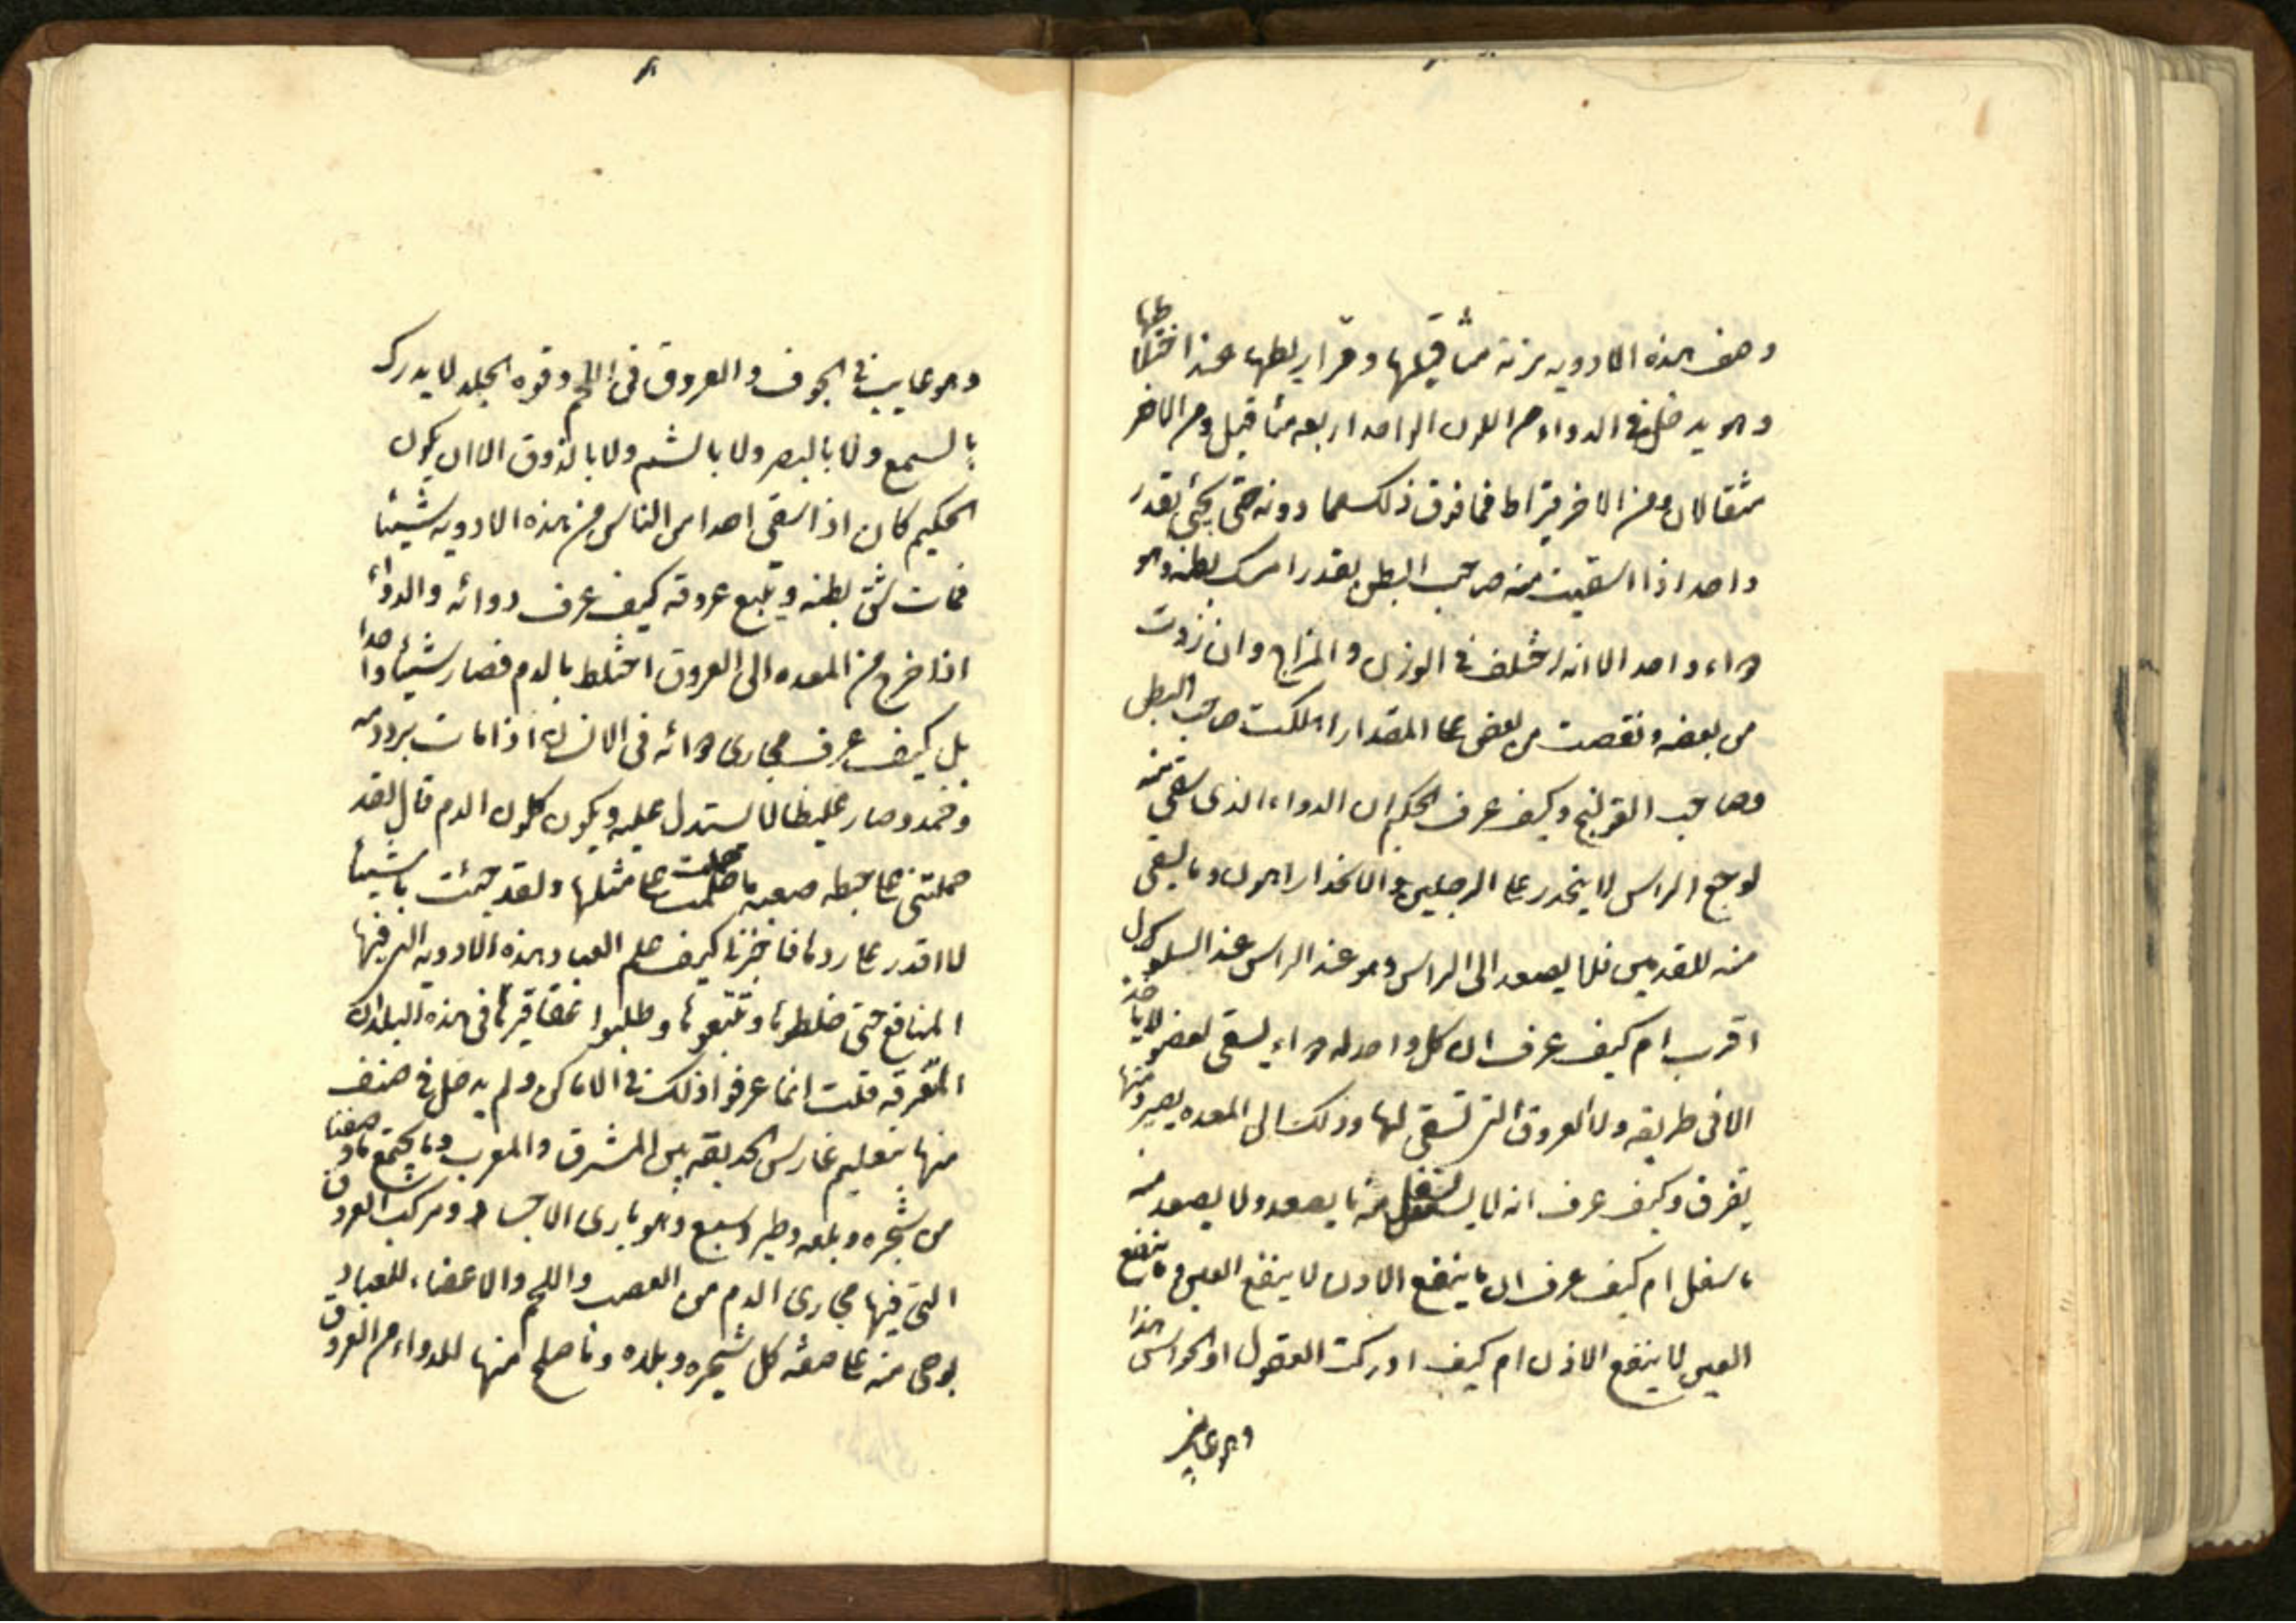 وصف هذه الادويه بزنة مثاقيلها وقراريطها عند اختلاطها
وهو يدخل في الدواء من اللون الواحد اربعه مثاقيل ومن الاخر
مثقالان ومن الاخر قيراط فما فوق ذلك مما دونه حتى يجئ بقدر
واحد اذا اسقيت منه صاحب البطن بقدر امسك بطنه وهو
دواء واحد الا انه اختلف في الوزن والمزاج وان زدت
من بعضه ونقصت من بعض على المقدار اهلكت صاحب البطن
وصاحب القولنج وكيف عرف الحكيم ان الدواء الذى يسقى منه
لوجع الراس لا ينحدر على الرجلين والانحدار اهون وما يسقى
منه للقدمين فلا يصعد الى الراس وهو عند الراس عند السلوك ال
اقرب ام كيف عرف ان كل واحد له دواء يسقى لعضو لا ياخذ
الا فى طريقه ولا العروق التى تسقى لها وذلك الى المعده يصير ومنها
يفرق وكيف عرف انه لا يستفل منه ما يصعد ولا يصعد منه
ما سفل ام كيف عرف ان ما ينفع الاذن لا ينفع العين وما ينفع
العين لا ينفع الاذن ام كيف ادركت العقول او الحواس هذا
وهو غايب
وهو غايب في الجوف والعروق فى اللحم وقوه الجلد لا يدرك
بالسمع ولا بالبصر ولا بالشم ولا بالذوق الا ان يكون
الحكيم كان اذا سقى احدا من الناس من هذه الادويه شيئا
فمات شق بطنه وتتبع عروقه كيف عرف دوائه والدواء
اذا خرج من المعده الى العروق اختلط بالدم فصار شيئا واحدا
بل كيف عرف مجارى دوائه فى الانسان اذا مات برد دمه
وخمد وصار غليظا لا يستدل عليه ويكون كلون الدم قال لقد
حملتنى على خطه صعبه ما حملت على مثلها ولقد جئت باشيئا
لا اقدر على ردها فاخبرنا كيف علم العباد هذه الادويه التى فيها
المنافع حتى خلطوها وتتبعوها وطلبوا عقاقيرها فى هذه البلدان
المتفرقه قلت انما عرفوا ذلك في الاماكن ولم يدخل في صنف
منها بتعليم غارس الحديقه بين المشرق والمغرب وما يجتمع ما وصفنا
من شجره وبلعه وطير وسبع وهو بارى الاجساد ومركب العروق
التى فيها مجارى الدم من العصب واللحم والاعضاء للعباد
بوحى منه على صفه كل شجره وبلده وما صلح منها للدواء من العروق